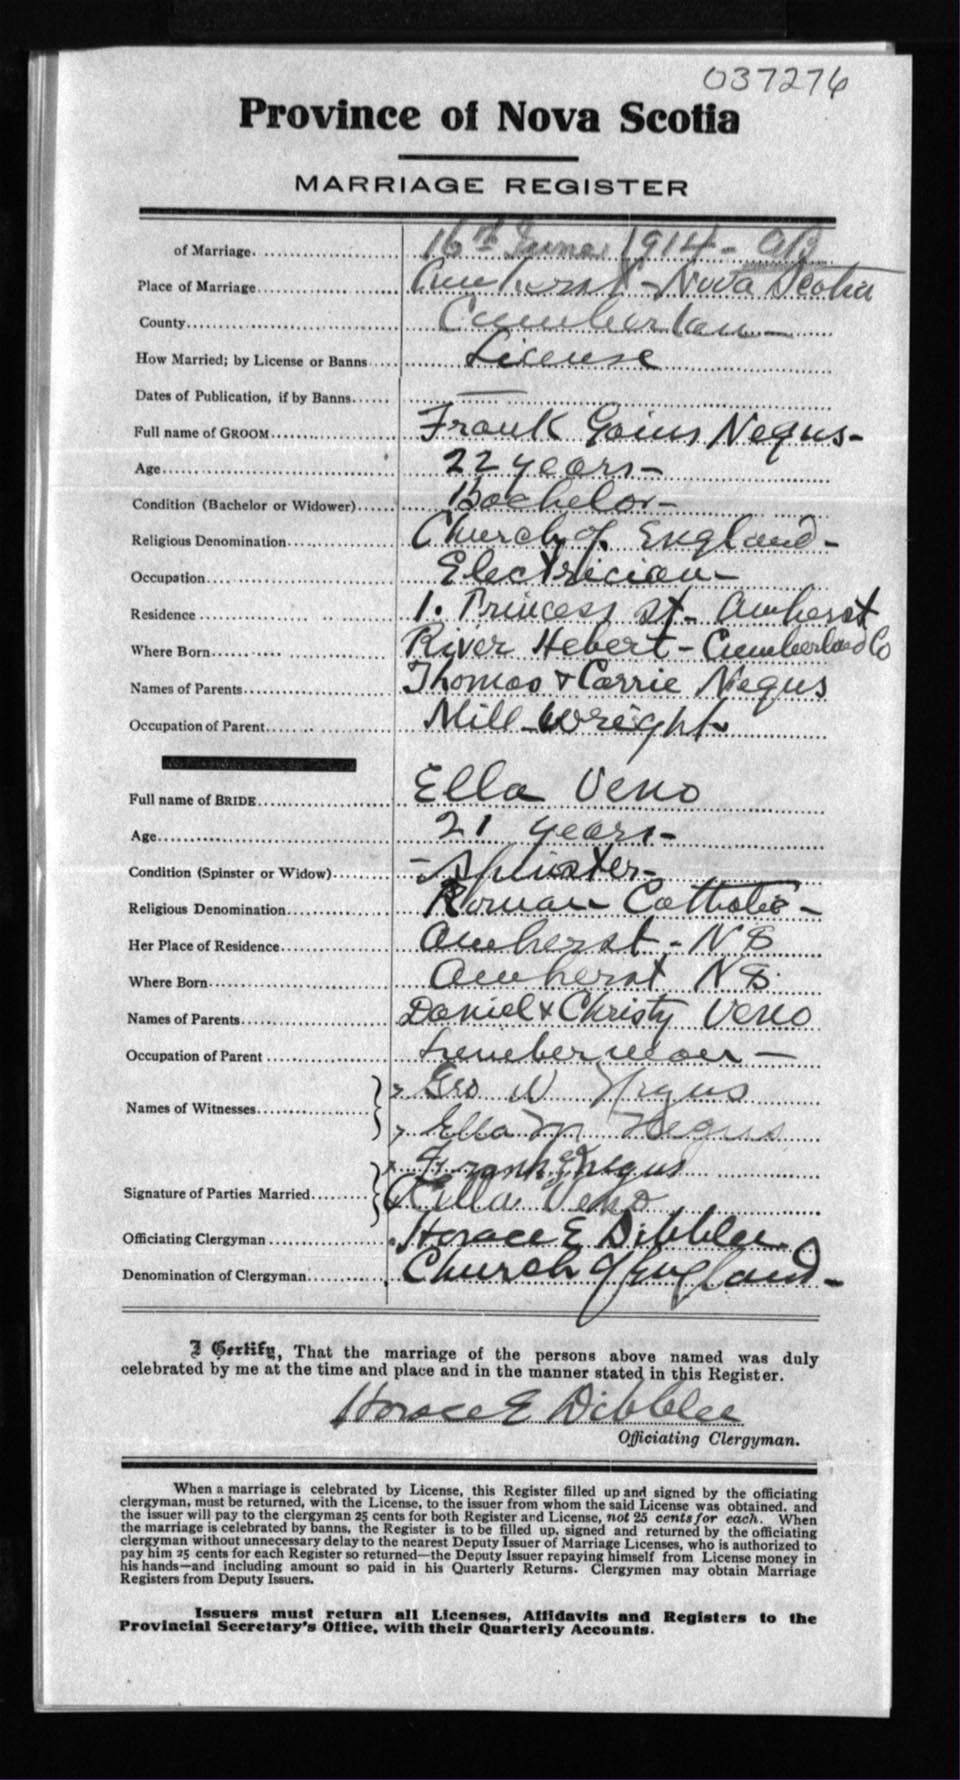 037276
Province of Nova Scotia
MARRIAGE REGISTER
of Marriage. 16th June 1914-
Place of Marriage Amherst - Nova Scotia
County Cumberlan-
How Married; by License or Banns License
Dates of Publication, if by Banns —
Full name of GROOM Frank Gaius Negus-
Age 22 years-
Condition (Bachelor or Widower) Bachelor-
Religious Denomination Church of England-
Occupation Electrician-
Residence 1. Princess St- Amherst
Where Born River Hebert - Cumberland Co
Names of Parents Thomas & Carrie Negus
Occupation of Parent Mill wright
Full name of BRIDE Ella Veno
Age 21 years-
Condition (Spinster or Widow) - Spinster-
Religious Denomination Roman Catholic-
Her Place of Residence Amherst - NS
Where Born Amherst NS.
Names of Parents Daniel & Christy Veno
Occupation of Parent Lumberman-
Names of Witnesses Geo W Negus
Ella M Negus
Signature of Parties Married Frank Negus
Ella Veno
Officiating Clergyman Horace E Dibblee
Denomination of Clergyman Church of England-
I Certify, That the marriage of the persons above named was duly
celebrated by me at the time and place and in the manner stated in this Register.
Horace E Dibblee
Officiating Clergyman.
When a marriage is celebrated by License, this Register filled up and signed by the officiating
clergyman, must be returned, with the License, to the issuer from whom the said License was obtained, and
the issuer will pay to the clergyman 25 cents for both Register and License, not 25 cents for each. When
the marriage is celebrated by banns, the Register is to be filled up, signed and returned by the officiating
clergyman without unnecessary delay to the nearest Deputy Issuer of Marriage Licenses, who is authorized to
pay him 25 cents for each Register so returned—the Deputy Issuer repaying himself from License money in
his hands—and including amount so paid in his Quarterly Returns. Clergymen may obtain Marriage
Registers from Deputy Issuers.
Issuers must return all Licenses, Affidavits and Registers to the
Provincial Secretary's Office, with their Quarterly Accounts.